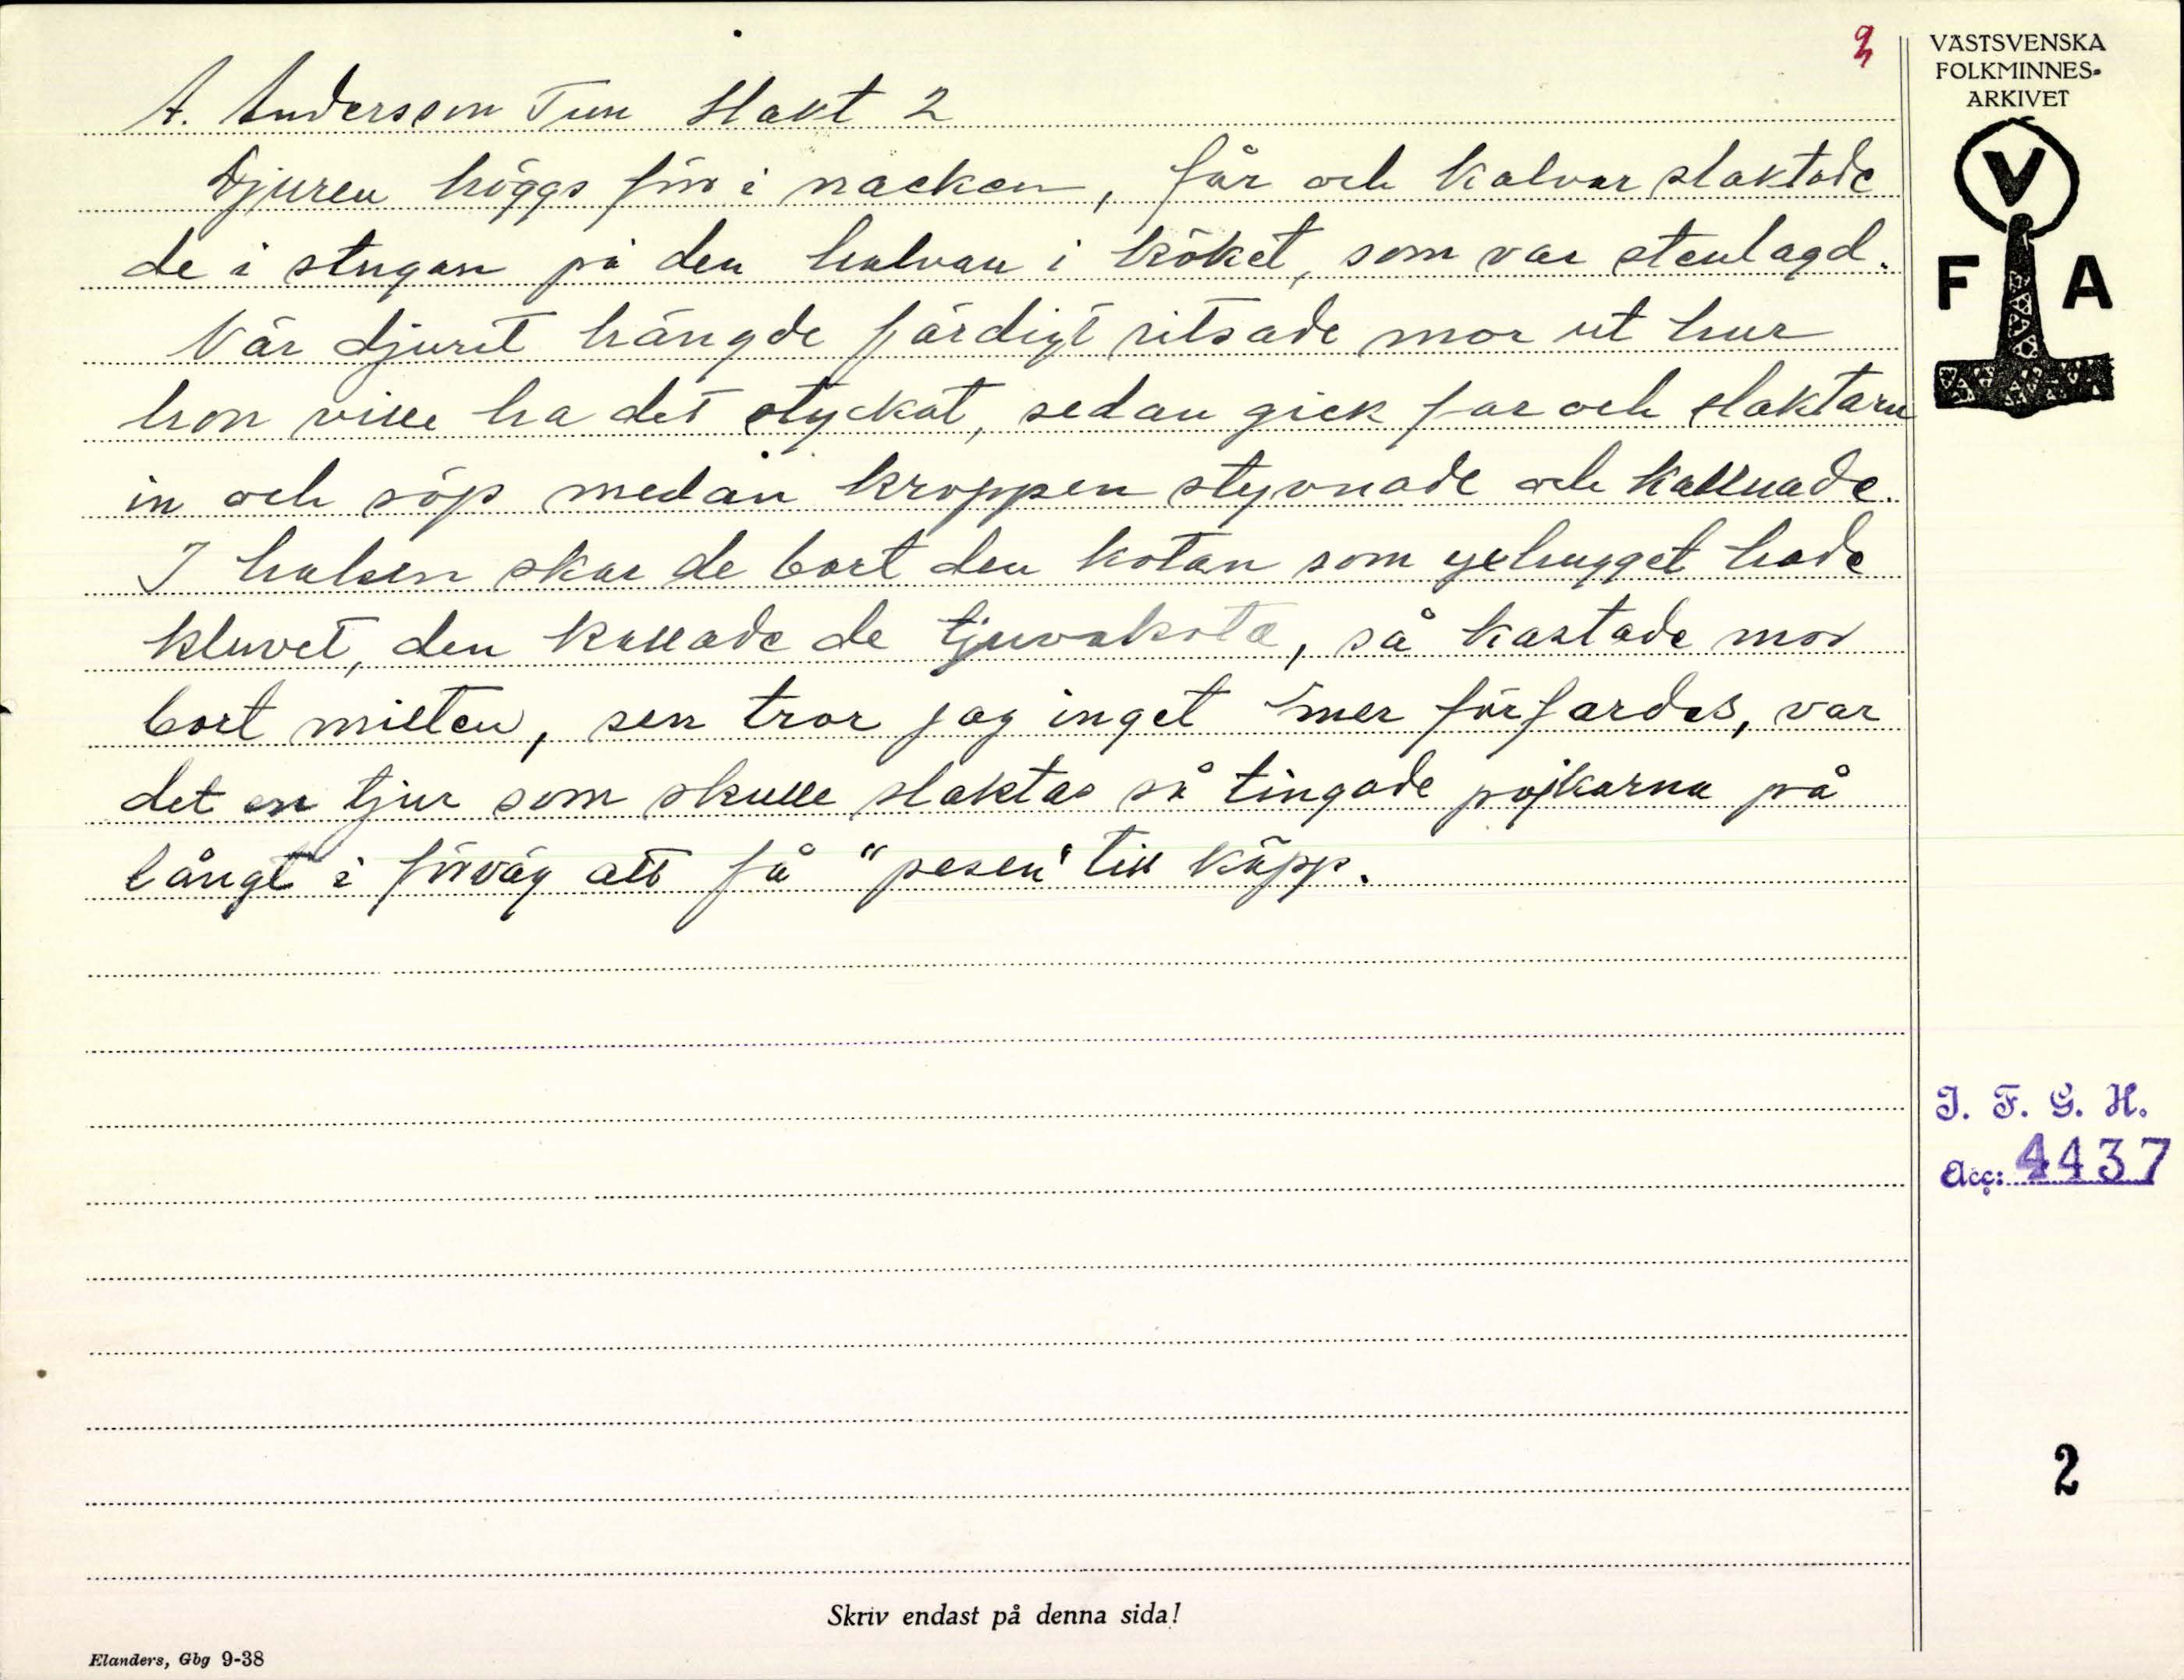 VÄSTSVENSKA
FOLKMINNES-
ARKIVET
V
F A
A. Andersson Tun Slakt 2
Djuren höggs förr i nacken, får och kalvar slaktade
de i stugan på den halvan i köket, som var stenlagd.
När djuret hängde färdigt ritsade mor ut hur
hon ville ha det styckat, sedan gick far och slaktarn
in och söp medan kroppen styvnade och kallnade.
I halsen skar de bort den kotan som yxhugget hade
kluvet, den kallade de tjuvakota, så kastade mor
bort milten, sen tror jag inget mer förfardes, var
det en tjur som skulle slaktas så tingade pojkarna på
långt i förväg att få "pesen" till käpp.
I. F. G. H.
Acc: 4437
2
Skriv endast på denna sida!
Elanders, Gbg 9-38